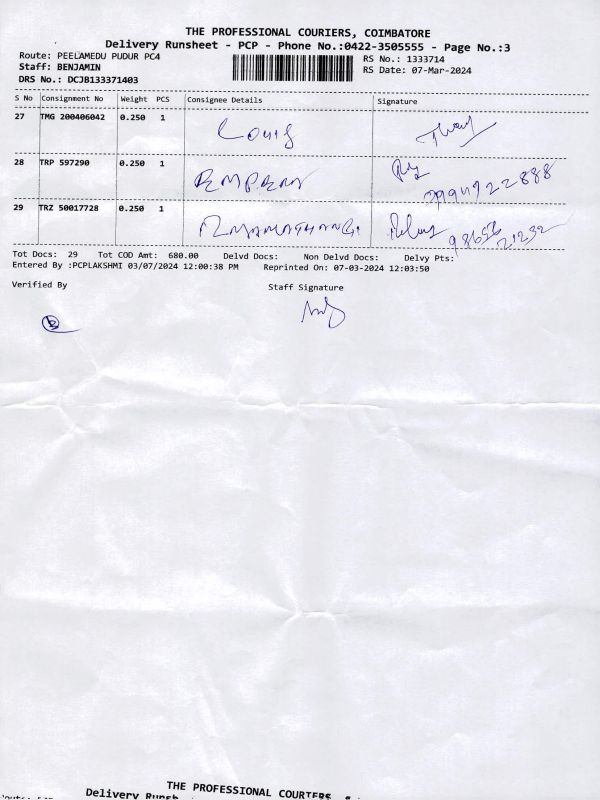 THE PROFESSIONAL COURIERS, COIMBATORE
Delivery Runsheet - PCP - Phone No.:0422-3505555 - Page No.:3
Route: PEELAMEDU PUDUR PC4 RS No.: 1333714
Staff: BENJAMIN RS Date: 07-Mar-2024
DRS No.: DCJB133371403
S No Consignment No Weight PCS Consignee Details Signature
27 TMG 200406042 0.250 1
28 TRP 597290 0.250 1
29 TRZ 50017728 0.250 1
Tot Docs: 29 Tot COD Amt: 680.00 Delvd Docs: Non Delvd Docs: Delvy Pts:
Entered By :PCPLAKSHMI 03/07/2024 12:00:38 PM Reprinted On: 07-03-2024 12:03:50
Verified By Staff Signature
THE PROFESSIONAL COURIERS,
Delivery